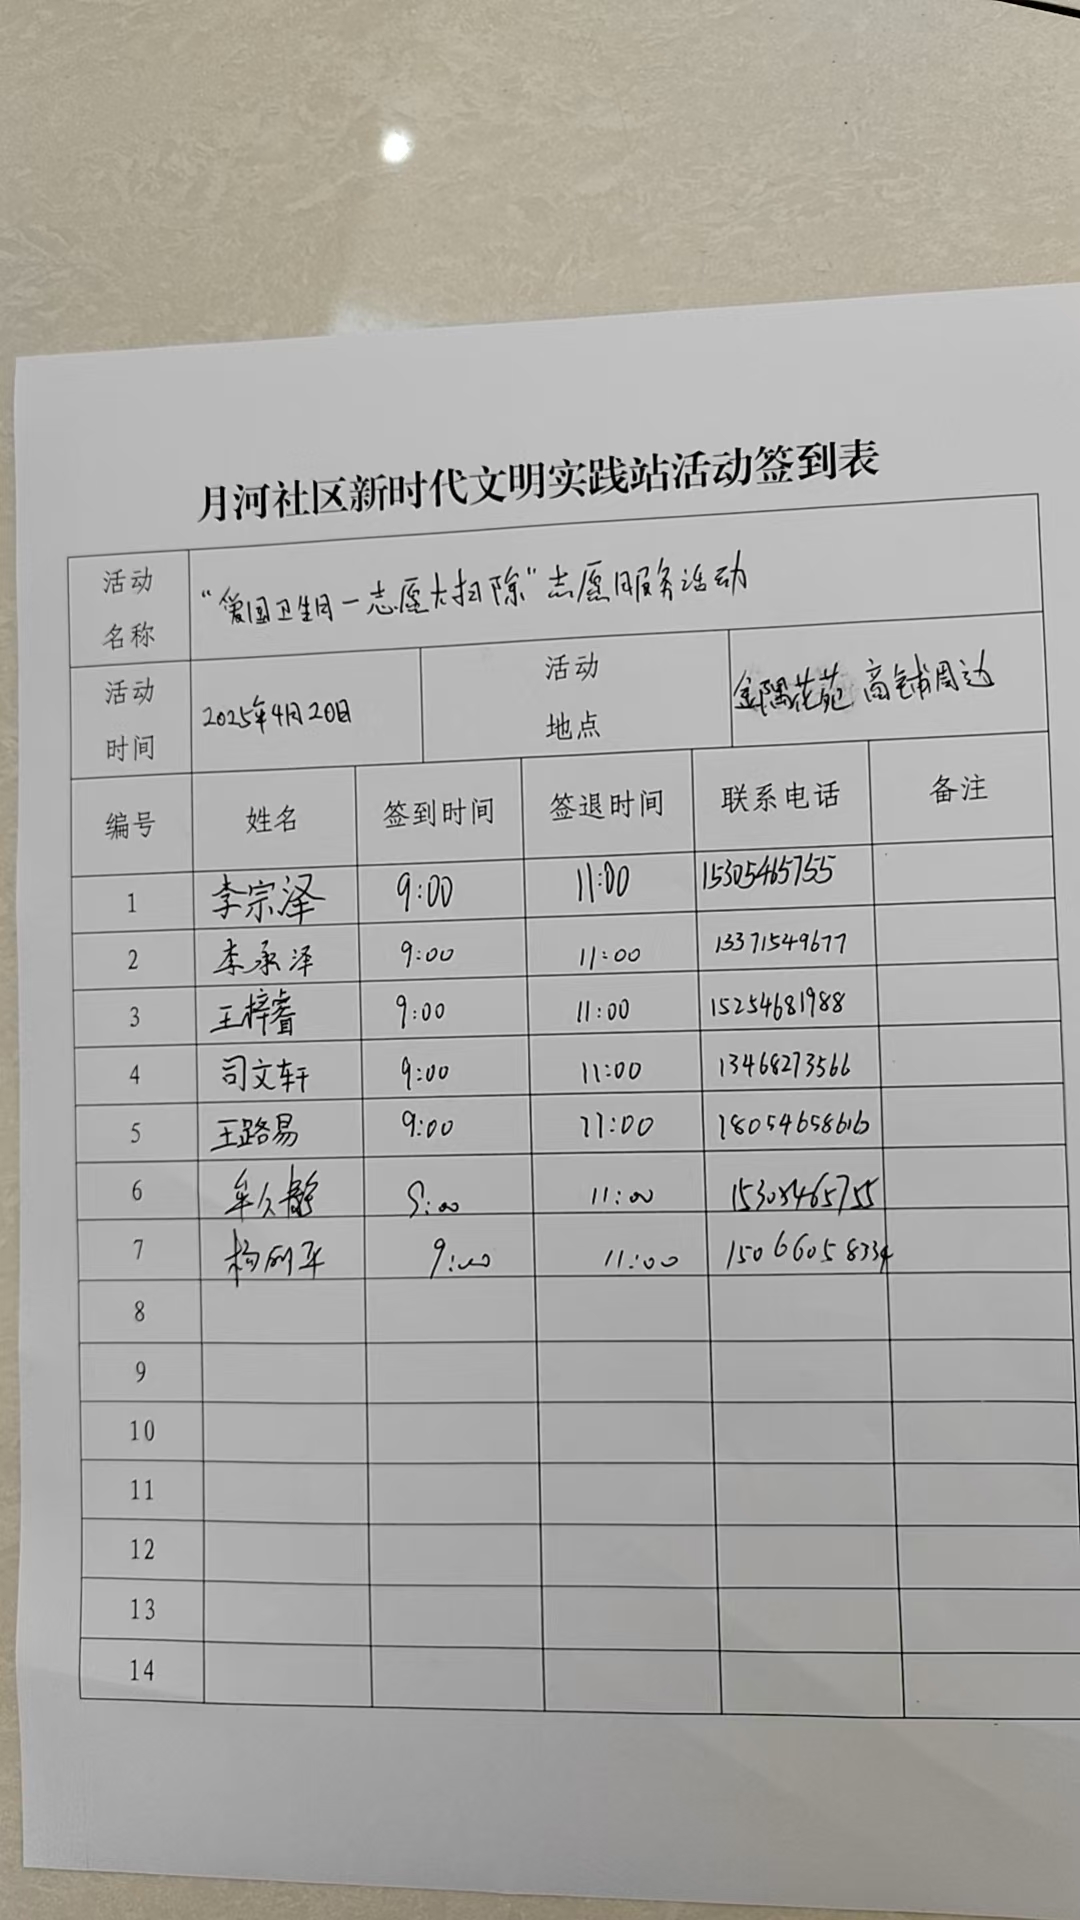 月河社区新时代文明实践站活动签到表
活动名称 “爱国卫生月一志愿大扫除”志愿服务活动
活动时间 2025年4月20日 活动地点 金隅花苑 商铺周边
编号 姓名 签到时间 签退时间 联系电话 备注
1 李宗泽 9:00 11:00 15305465755
2 李承泽 9:00 11:00 13371549677
3 王梓睿 9:00 11:00 15254681988
4 司文轩 9:00 11:00 13468273566
5 王路易 9:00 11:00 18054658616
6 9:00 11:00 15305465755
7 9:00 11:00 15066058334
8
9
10
11
12
13
14